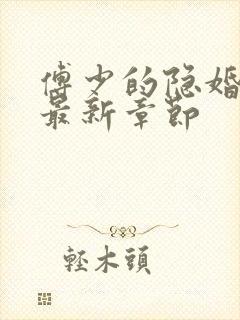 傅少的隐婚
最新章節
輕木頭